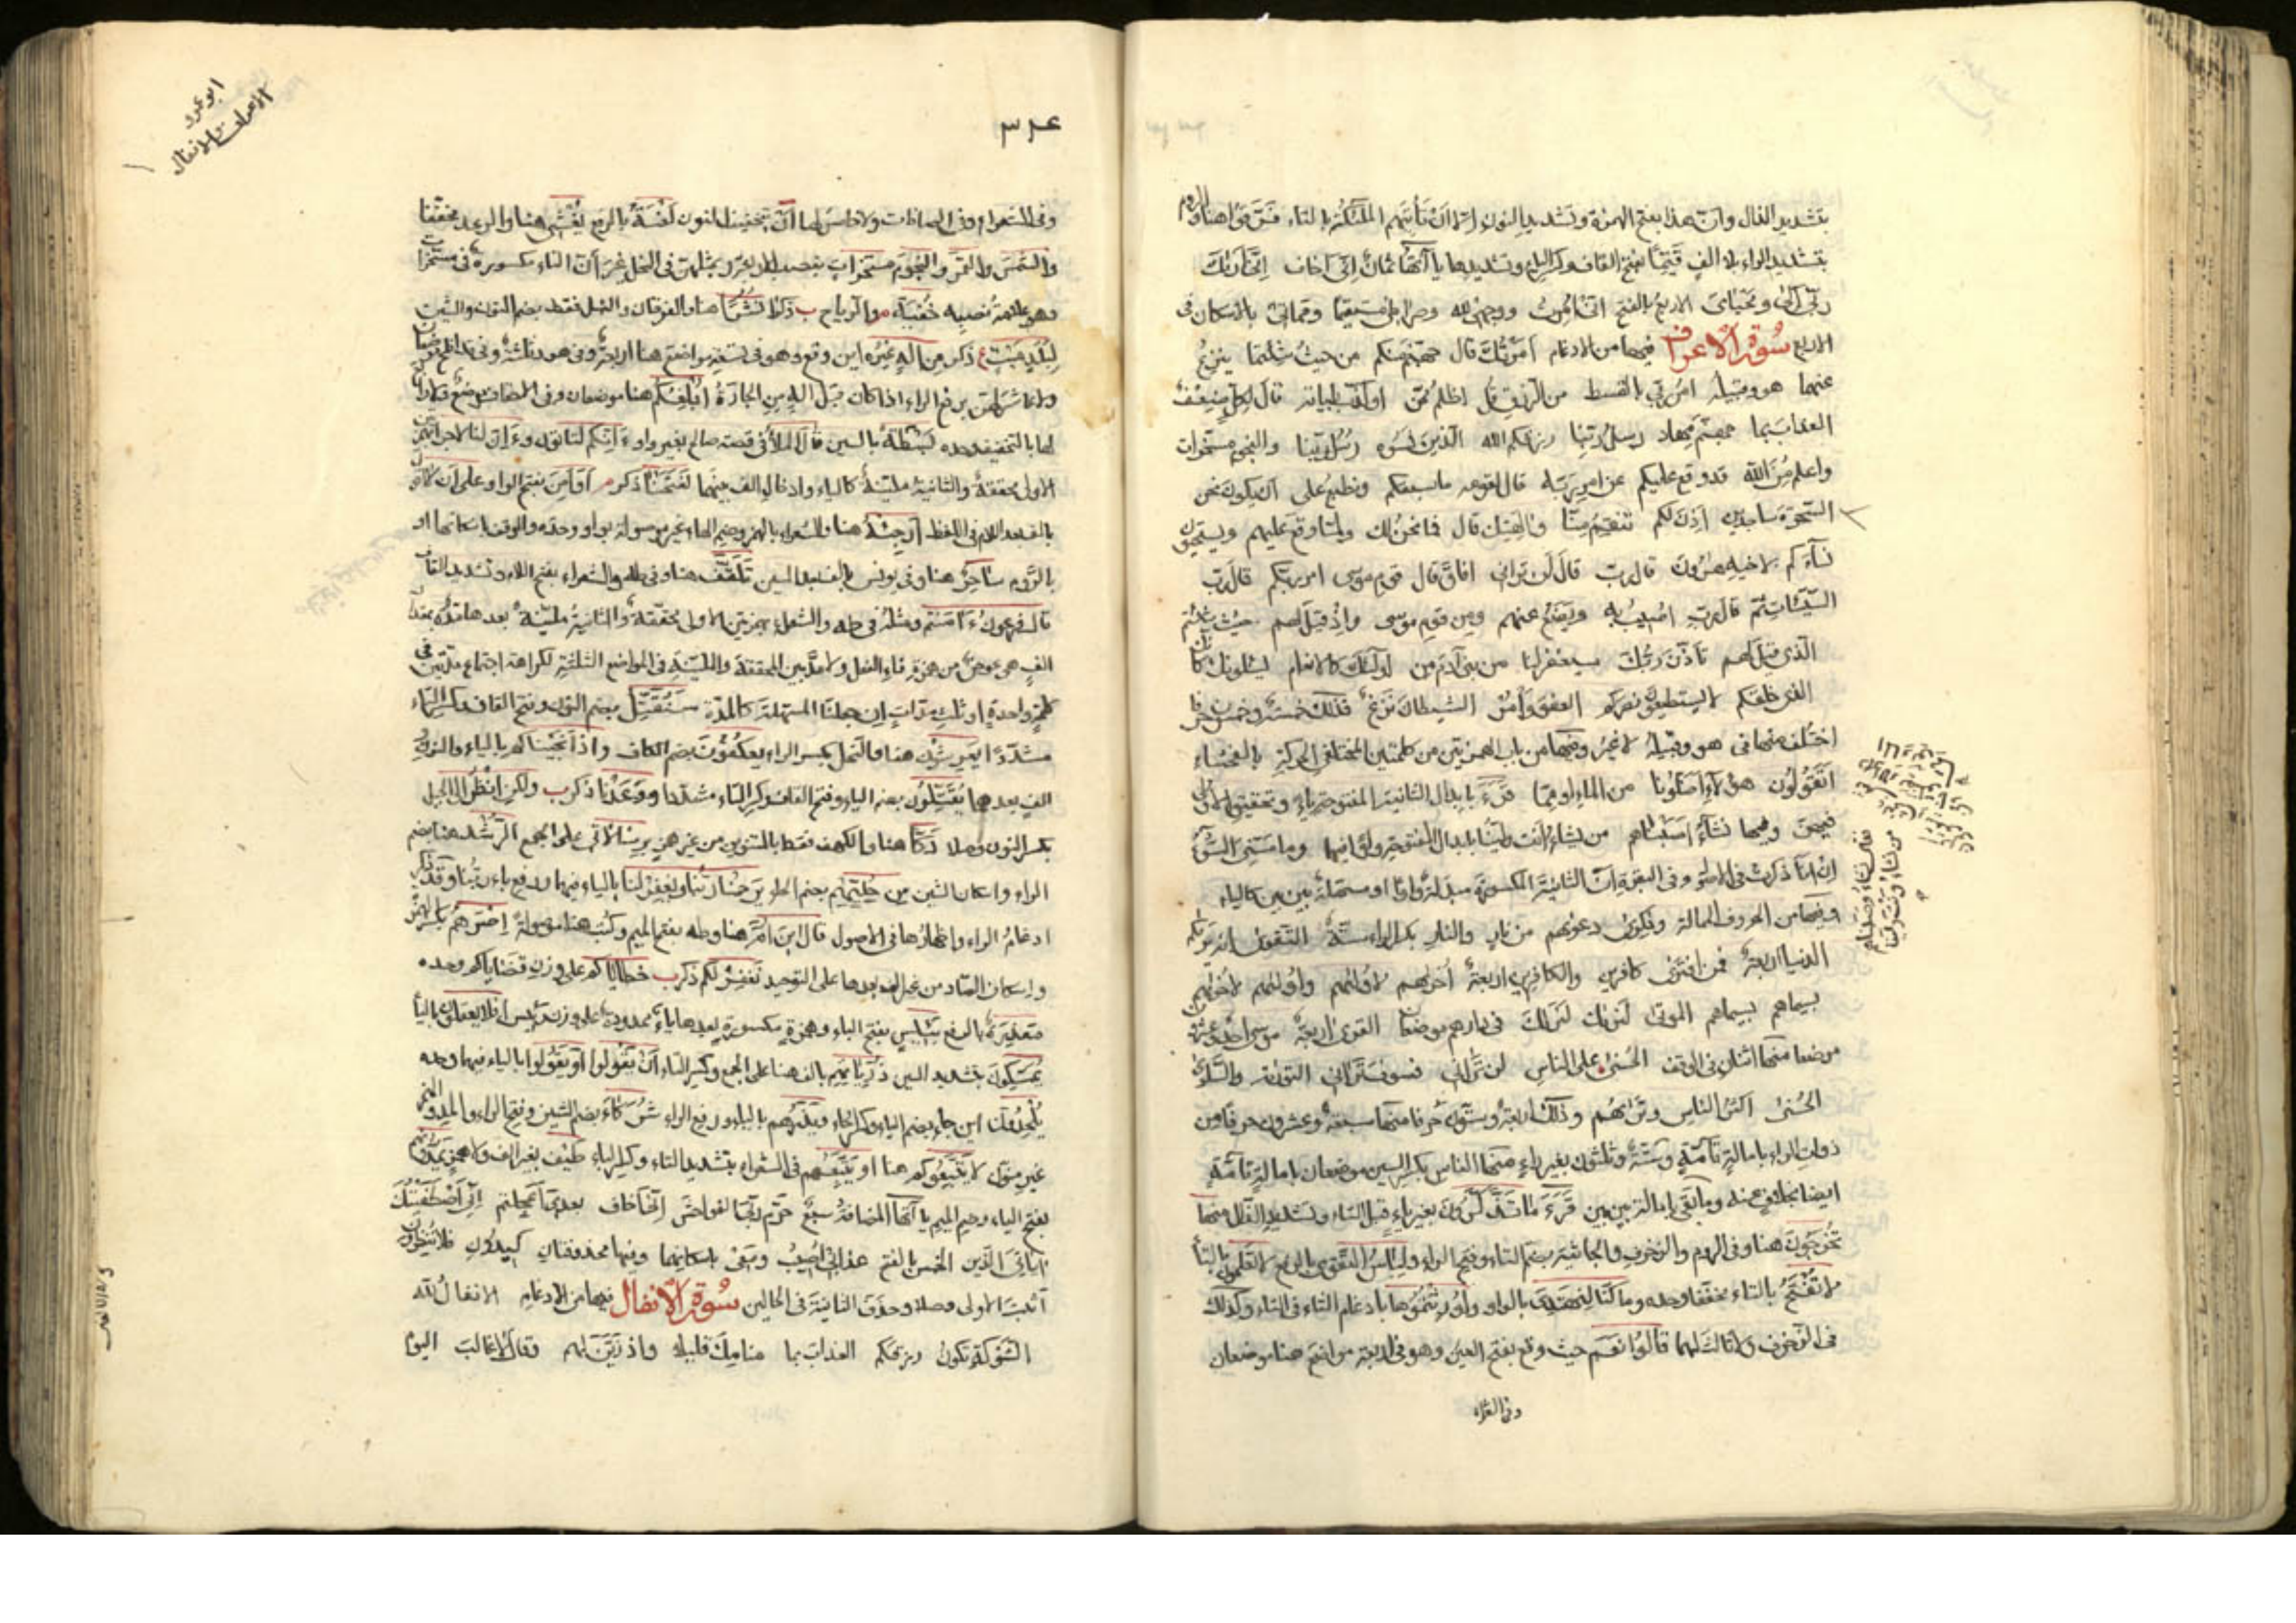 بتشديد الذال وانّ هذا بفتح الهمزة وتشديد النون الا ان تأتيهم الملٰئكة بالتاء فرّقوا هنا والروم
بتشديد الراء بلا الف قيّمًا بفتح القاف وكسر الياء وتشديدها ياآتها ثمانٌ اِنّى اخاف اِنّى اَرٰىك
ربّى الى ومحياى الاربع بالفتح انّى اُمرت ووجهى لله وصراطى مستقيما ومماتى بالاسكان فى
الاربع سورة الاعراف فيها من الادغام اَمَرْتُكَ قال جهنم منكم من حيث شئتما ينزع
عنهما هو وقبيله امر ربّى بالقسط من الرزق قل اظلم ممّن او كذّب بآياته قال لكلٍّ ضعف
العذاب بما جهنم مهاد رسل ربنا رزقكم الله الذين نسوه رسل ربّنا والنجوم مسخرات
واعلم من الله قد وقع عليكم عن امر ربّهم قال لقومه ما سبقكم ونطبع على ان يكون نحن
السحرة ساجدين اٰذن لكم تنقم منّا واٰلهتك قال فما نحن لك ولمّا وقع عليهم ويستحيون
نساءكم لاخيه هٰرون قال ربّ قال لن ترانى افاق قال قوم موسى امر ربكم قال ربّ
السيّئات ثمّ قال ربّ اصيب به ويضع عنهم ومن قوم موسى واذ قيل لهم حيث شئتم
الذى قيل لهم تأذّن ربّك سيغفر لنا من بنى آدم من اولٰئك كالانعام يسئلونك كانّك
الذى خلقكم لا يستطيعون نصركم العفو وأمر الشيطان نزغ فذلك خمسة وخمسون حرفا
اختلف منها فى هو وقبيله لا غير وفيها من باب الهمزتين من كلمتين المختلفى الحركة بالفحشاء
اَتقولون هٰؤلاء اضلّونا من الماء او ممّا قرء بابدال الثانية المفتوحة ياء وتحقيق الاولى
فيهنّ وفيها نشاء اصبناهم من تشاء انت وليّنا بابدال المفتوحة واوا فيها وما مسّنى السوء
ان انا ذكرت فى الاصول وفى البقرة انّ الثانية المكسورة مبدلة واوا او مسهلة بين بين كالياء
وفيها من الحروف الممالة وذكرى دعوٰيهم من نارٍ والنار بكسر الراء ستة التقوى انه يريكم
الدنيا اربعة فمن افترى كافرين والكافرين اربعة اُخرٰيهم لاُولٰيهم واُولٰيهم لاُخرٰيهم
بسيماهم بسيماهم الموتى لنرٰيك لنرٰيك فى دارهم موضعان القرى اربعة موسى احد وعشرون
موضعا منها اثنان فى الوقف الحسنى على الناس لن ترانى فسوف ترانى التورٰية والسلوى
الحسنى اكثر الناس وترٰيهم وذلك اربعة وستون حرفا منها سبعة وعشرون حرفا من
ذوات الراء بامالة تامّة وستّة وثلثون بغير راء منها الناس بكسر السين موضعان بامالة تامّة
ايضا بخلاف عنه وما بقى بامالة بين بين قرء ما تذّكّرون بغير ياء قبل التاء وتشديد الذال منها
تُخرَجون هنا وفى الروم والزخرف والجاثية بضم التاء وفتح الراء ولباس التقوى بالرفع لا تعلمون بالتاء
لا تُفْتَح بالتاء مخففا وحده وما كنّا لنهتدى بالواو واُورثتموها بادغام الثاء فى التاء وكذلك
فى الزخرف ولا ثالث لهما قالوا نعم حيث وقع بفتح العين وهو فى اربعة مواضع هنا موضعان
وفى الشعراء
نشاء اصبناهم
من تشاء وتشرقنا
٣٢٤
ابو عمرو
الاعراف والانفال
وفى الشعراء وفى الصافات ولا خامس لها اَنْ بتخفيف النون لعنةُ بالرفع يُغْشِى هنا والرعد مخففا
والشمسَ والقمرَ والنجومَ مسخراتٍ بنصب الاربعة ومثلهنّ فى النحل غير انّ التاء مكسورة فى مسخرات
وهو علامة نصبه خُفْيَةً م والرياح ب ذكرا نُشُرًا هنا والفرقان والنمل فقط بضم النون والشين
لبلدٍ ميْتٍ ع ذكر من اِلٰهٍ غيرُه اين وقع وهو فى تسعة مواضع هنا اربعة وفى هود ثلثة وفى قد افلح موضعان
ولا عاشر لهنّ برفع الراء اذا كان قبل اله من الجارّة اُبْلِغُكم هنا موضعان وفى الاحقاف موضع ولا رابع
لها بالتخفيف وحده بسطة بالسين قال الملأ فى قصة صالح بغير واو ءَاِنّكم لتأتون وءَاِنّ لنا لاجرا بهمزتين
الاولى محققة والثانية مليّنة كالياء وادخال الف بينهما لفتحنا ذكر م اَوَاَمِنَ بفتح الواو على ان لا
بالف بعد اللام فى اللفظ اَرْجِئْهُ هنا والشعراء بالهمز وضم الهاء غير موصولة بواو وحده والوقف باسكانها او
بالرّوم ساحرٍ هنا وفى يونس بالف بعد السين تَلَقَّفُ هنا وفى طه والشعراء بفتح اللام وتشديد القاف
قال فرعون ءَاٰمنتم ومثله فى طه والشعراء بهمزتين الاولى محققة والثانية مليّنة بعدها مدّة بمقدار
الف هى عوض من همزة فاء الفعل ولا مدّ بين المحققة والملينة فى المواضع الثلثة لكراهة اجتماع مدّتين فى
كلمة واحدة او ثلث مدّات ان جعلنا المسهلة كالمدّة سَنُقَتِّلُ بضم النون وفتح القاف وكسر التاء
مشدّدًا يَعْرِشُون هنا والنحل بكسر الراء يعكُفون بضم الكاف واذ انجيناكم بالياء والنون و
الف بعدهما يُقَتِّلُون بضم الياء وفتح القاف وكسر التاء مشدّدا ووعدنا ذكر ب ولكنِ انظر الى الجبل
بكسر النون وصلا دكًّا هنا والكهف فقط بالتنوين من غير همز برسالاتى على الجمع الرُّشد هنا بضم
الراء واسكان الشين من حُليّهم بضم الحاء يرحمنا ربنا ويغفر لنا بالياء فيهما ورفع باء ربّنا وقد ذكر
ادغام الراء واظهارها فى الاصول قال ابنَ اُمَّ هنا وطه بفتح الميم وكتب هنا موصولة اِصْرَهم بكسر الهمزة
واسكان الصاد من غير الف بعدها على التوحيد نغفر لكم ذكر ب خطاياكم على وزن قضاياكم وحده
معذرةٌ بالرفع بئيس بفتح الباء وهمزة مكسورة بعدها ياء ممدودة على وزن رئيس افلا يعقلون بالياء
يُمَسِّكون بتشديد السين ذُرّيّاتِهم بالف هنا على الجمع وكسر التاء ان يقولوا او يقولوا بالياء فيهما وحده
يُلْحِدُون اين جاء بضم الياء وكسر الحاء ويذرُهم بالياء ورفع الراء شُركاءَ بضم الشين وفتح الراء والمدّ والهمز
غير منوّن لا يتّبعوكم هنا او يتّبعهم فى الشعراء بتشديد التاء وكسر الباء طَيْف بغير الف ولا همز يَمُدّونهم
بفتح الياء وضم الميم ياآتها المضافة سبع حرّم ربّى الفواحش اِنّى اخاف بعدى اَعجلتم اِنّى اصطفيتك
اٰياتى الّذين الخمس بالفتح عذابى اُصيب ومعى باسكانهما وفيها محذوفتان كيدون فلا تنظرون
اثبت الاولى وصلا وحذف الثانية فى الحالين سورة الانفال فيها من الادغام الانفال لله
الشوكة تكون ورزقكم العذاب بما منامك قليلا واذ زيّن لهم وقال لا غالب اليوم